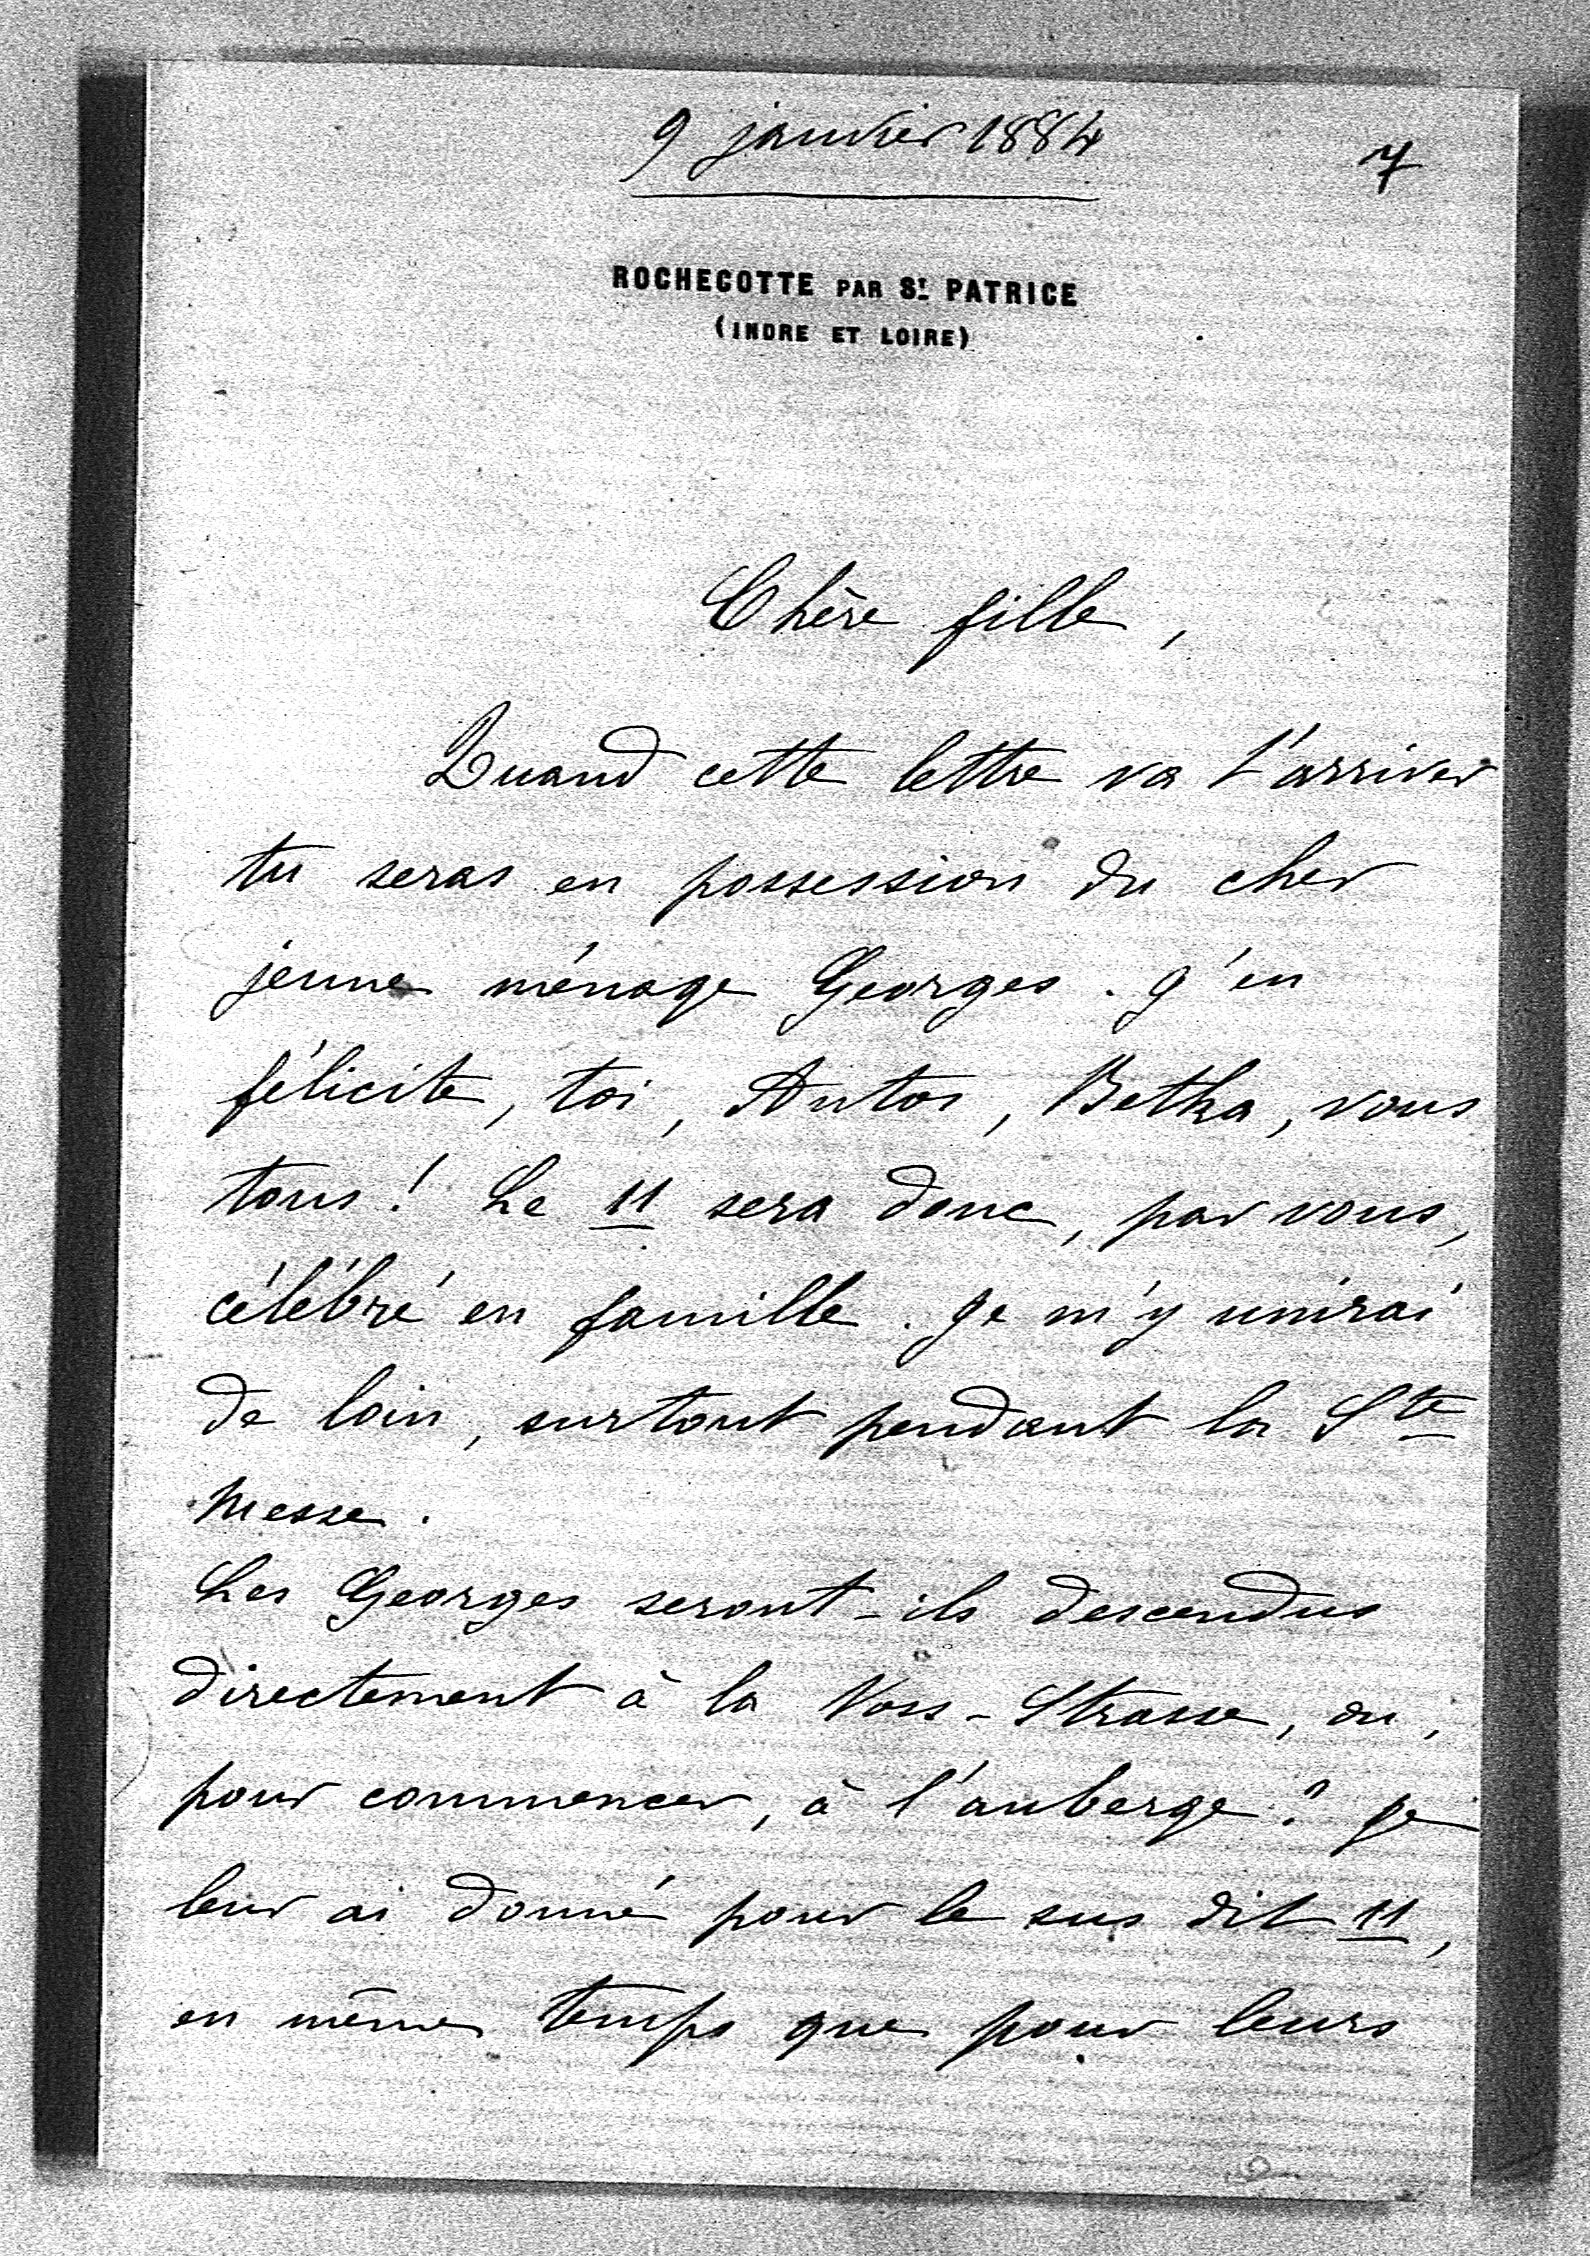 9 janvier 1884
7
ROCHECOTTE PAR ST PATRICE
(INDRE ET LOIRE)
Chère fille,
Quand cette lettre va t'arriver
tu seras en possession du cher
jeune ménage Georges. J'en
félicite, toi, Antos, Betka, vous
tous! Le 11 sera donc, par vous,
célébré en famille. Je m'y unirai
de loin, surtout pendant la Ste
Messe.
Les Georges seront-ils descendus
directement à la Voss-Strasse, ou,
pour commencer, à l'auberge? Je
leur ai donné pour le sus dit 11,
en même temps que pour leurs